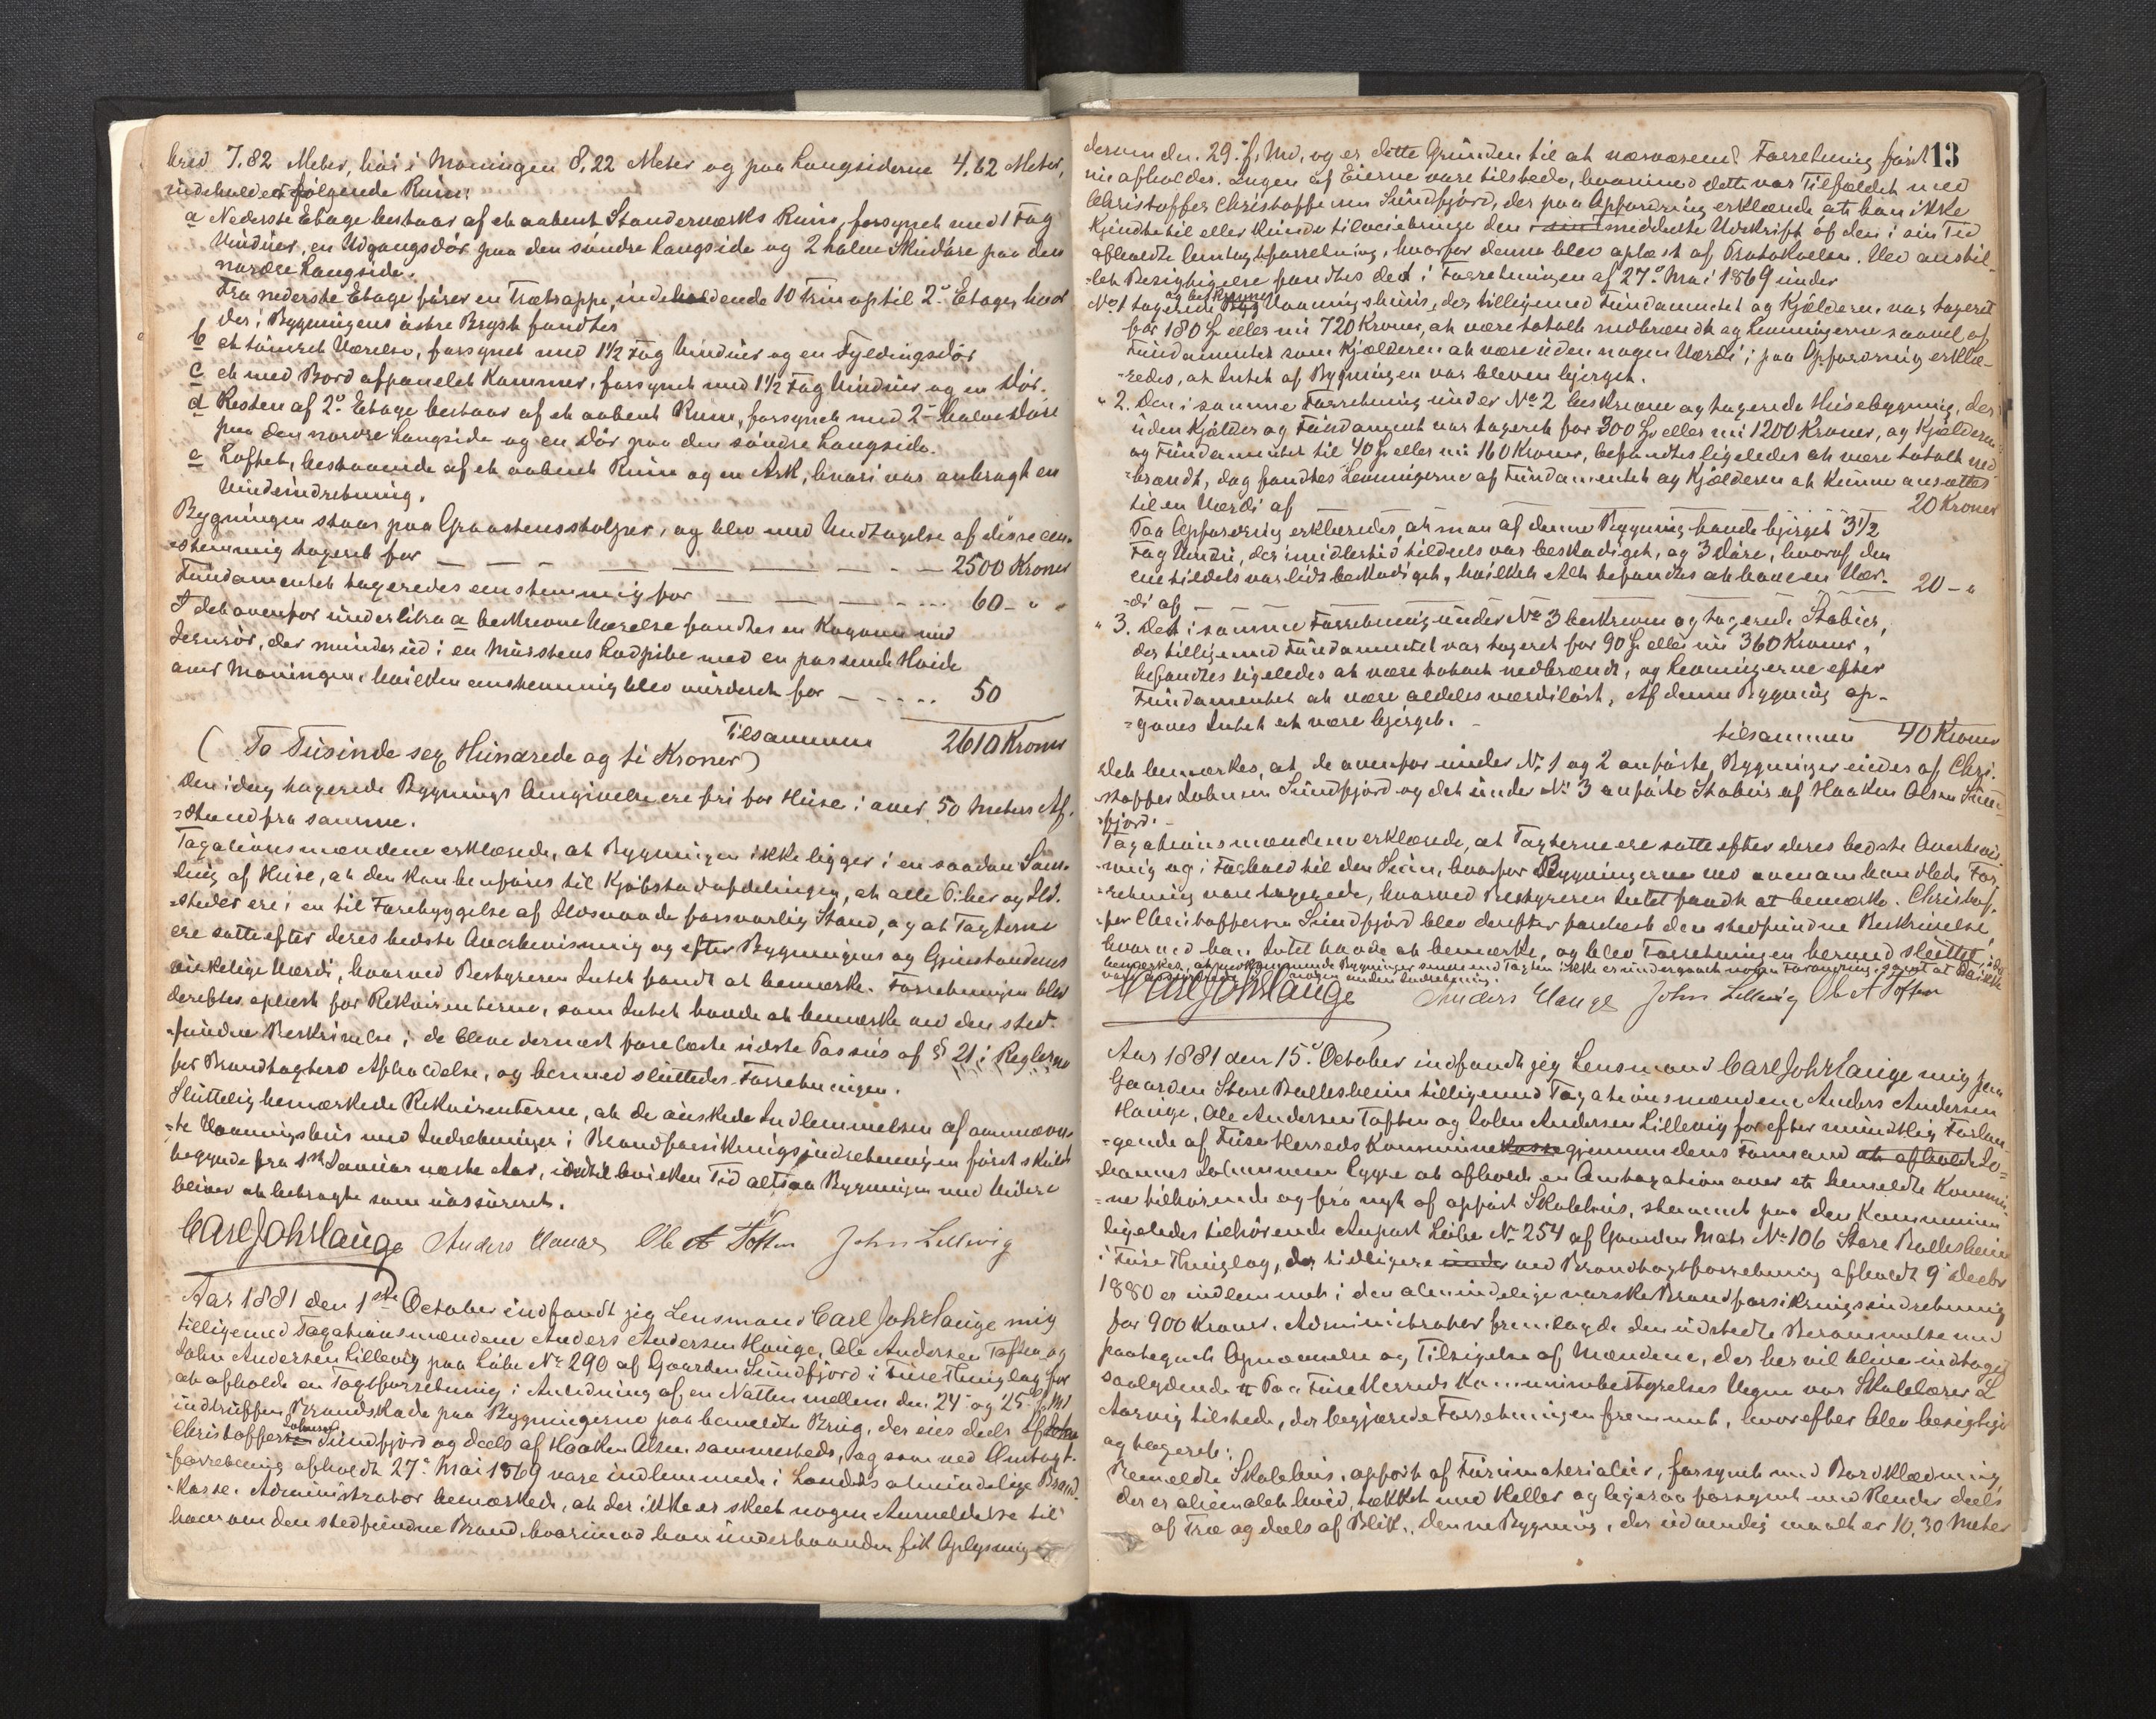 bred 7.82 Meter, høi i Møningen 8,22 Meter og paa Langsiderne 4,62 Meter,
indeholder følgende Rum:
a Nederste Etage bestaar af et aabent Standerværks Rum, forsynet med 1 Fag
Vinduer, en Udgangsdør paa den søndre Langside og 2 halve Skuddøre paa den
nordre Langside.
Fra nederste Etage fører en Trætrappe, indeholdende 10 Trin op til 2den Etage, hvor
der i Bygningens østre Bryst fandtes
b et tømret Værelse, forsynet med 1½ Fag Vinduer og en Fyldingsdør
c et med Bord afpanelet Kammer, forsynet med 1½ Fag Vinduer og en Dør.
d Resten af 2den Etage bestaar af et aabent Rum, forsynet med 2de halve Døre
paa den nordre Langside og en Dør paa den søndre Langside.
e Loftet, bestaaende af et aabent Rum og en Ark, hvori var anbragt en
Vindeindretning.
Bygningen staar paa Graastensstolper, og blev med Undtagelse af disse een-
stemmig taxeret for — — — 2500 Kroner
Fundamentet taxeredes eenstemmig for — — — 60 - " -
I det ovenfor under litra a beskrevne Værelse fandtes en Kogeovn med
Jernrør, der munder ud i en Murstens Lodpibe med en passende Høide
over Møningen, hvilken eenstemmig blev vurderet for — — 50
Tilsammen 2610 Kroner
(To Tusinde sex Hundrede og ti Kroner)
Den idag taxerede Bygnings Omgivelse ere fri for Huse i over 50 Meters Af-
stand fra samme.
Taxationsmændene erklærede, at Bygningen ikke ligger i en saadan Sam-
ling af Huse, at den kan henføres til Kjøbstadafdelingen, at alle Piber og Ild-
steder ere i en til Forebyggelse af Ildsvaade forsvarlig Stand, og at Taxterne
ere satte efter deres bedste Overbevisning og efter Bygningens og Gjenstandens
virkelige Værdi, hvorved Bestyreren Intet fandt at bemærke. Forretningen blev
derefter oplæst for Rekvirenterne, som Intet havde at bemærke ved den sted-
fundne Beskrivelse; de bleve dernæst forelæste sidste Passus af § 21 i Reglerne
for Brandtaxters Afholdelse, og hermed sluttedes Forretningen.
Sluttelig bemærkede Rekvirenterne, at de ønskede Indlemmelsen af ommeldt-
te Vaaningshus med Indretninger i Brandforsikringsindretningen først skulde
begynde fra 1ste Januar næste Aar, indtil hvilken Tid altsaa Bygningen med Videre
bliver at betragte som uassureret.
Carl Joh Hauge Anders Hauge Ole A Toften John Lillevig
Aar 1881 den 1ste October indfandt jeg Lensmand Carl Joh Hauge mig
tilligemed Taxationsmændene Anders Andersen Hauge, Ole Andersen Toften og
John Andersen Lillevig paa Løbe No 290 af Gaarden Sundfjord i Fuse Thinglag for
at afholde en Taxtforretning i Anledning af en Natten mellem den 24de og 25de f. Md
indtruffen Brandskade paa Bygningerne paa bemeldte Brug, der eies deels af
Christoffer Johnsen Sundfjord og deels af Haaken Olsen sammesteds, og som ved Omtaxt-
forretning afholdt 27de Mai 1869 vare indlemmede i Landets almindelige Brand-
kasse. Administrator bemærkede, at der ikke er skeet nogen Anmeldelse til
ham om den stedfundne Brand hvorimod han underhaanden fik Oplysning
13
derom den 29de f. Md, og er dette Grunden til at nærværende Forretning først
nu afholdes. Ingen af Eierne vare tilstede, hvorimod dette var Tilfældet med
Christoffer Christoffersen Sundfjord, der paa Opfordring erklærede at han ikke
kjendte til eller kunde tilveiebringe den meddelte Udskrift af den i sin Tid
afholdte Omtaxtforretning, hvorfor denne blev oplæst af Protokollen. Ved anstil-
let Besigtigelse fandtes det i Forretningen af 27de Mai 1869 under
No 1 taxerede og beskrevne Vaaningshuus, der tilligemed Fundamentet og Kjælderen var taxeret
for 180 Spd eller nu 720 Kroner, at være totalt nedbrændt og Levningerne saavel af
Fundamentet som Kjælderen at være uden nogen Værdi; paa Opfordring erklæ-
redes, at Intet af Bygningen var bleven bjerget.
" 2. Den i samme Forretning under No 2 beskrevne og taxerede Husebygning, der
uden Kjælder og Fundament var taxeret for 300 Spd eller nu 1200 Kroner, og Kjælderen
og Fundamentet til 40 Spd eller nu 160 Kroner, befandtes ligeledes at være totalt ned-
brændt, dog fandtes Levningerne af Fundamentet og Kjælderen at kunne ansættes
til en Værdi af — — — 20 Kroner
Paa Opfordring erklæredes, at man af denne Bygning havde bjerget 3½
Fag Vindu, der imidlertid tildeels var beskadiget, og 3 Døre, hvoraf den
ene tildels var lidt beskadiget, hvilket Alt befandtes at have en Vær-
di af — — — 20 - "
" 3. Det i samme Forretning under No 3 beskrevne og taxerede Stabur,
der tilligemed Fundamentet var taxeret for 90 Spd eller nu 360 Kroner,
befandtes ligeledes at være totalt nedbrændt, og Levningerne efter
Fundamentet at være aldeles værdiløst. Af denne Bygning op-
gaves Intet at være bjerget. -
tilsammen 40 Kroner
Det bemærkes, at de ovenfor under No 1 og 2 anførte Bygninger eiedes af Chri-
stoffer Johnsen Sundfjord og det under No 3 anførte Stabur af Haaken Olsen Sund-
fjord. -
Taxationsmændene erklærede, at Taxterne ere satte efter deres bedste Overbevis-
ning og i Forhold til den Sum, hvorfor Bygningerne ved ovenomhandlede For-
retning vare taxerede, hvorved Bestyreren Intet fandt at bemærke. Christof-
fer Christoffersen Sundfjord blev derefter forelæst den stedfundne Beskrivelse,
hvorved han Intet havde at bemærke, og blev Forretningen hermed sluttet,
Carl Joh Hauge Anders Hauge John Lillevig Ole A Toften
Aar 1881 den 15de October indfandt jeg Lensmand Carl Joh Hauge mig paa
Gaarden Store Bollesheim tilligemed Taxationsmændene Anders Andersen
Hauge, Ole Andersen Toften og John Andersen Lillevig for efter mundtlig Forlan-
gende af Fuse Herreds Kommune gjennem dens Formand Jo-
hannes Johannessen Eggje at afholde en Omtaxation over et bemeldte Kommu-
ne tilhørende og fra nyt af opført Skolehus, staaende paa den Kommunen
ligeledes tilhørende Anpart Løbe No 254 af Gaarden Matr No 106 Store Bollesheim
i Fuse Thinglag, der tidligere ved Brandtaxtforretning afholdt 9de Decbr
1880 er indlemmet i den almindelige norske Brandforsikringsindretning
for 900 Kroner. Administrator fremlagde den udstedte Berammelse med
paategnet Opnævnelse og Tilsigelse af Mændene, der her vil blive indtaget
saalydende Paa Fuse Herreds Kommunebestyrelses Vegne var Skolelærer L
Aarvig tilstede, der begjærede Forretningen fremmet, hvorefter blev besigtiget
og taxeret:
Bemeldte Skolehus, opført af Furumaterialier, forsynet med Bordklædning,
der er oliemalet hvid, tækket med Heller og ligesaa forsynet med Render deels
af Træ og deels af Blik. Denne Bygning, der udvendig maalt er 10,30 Meter